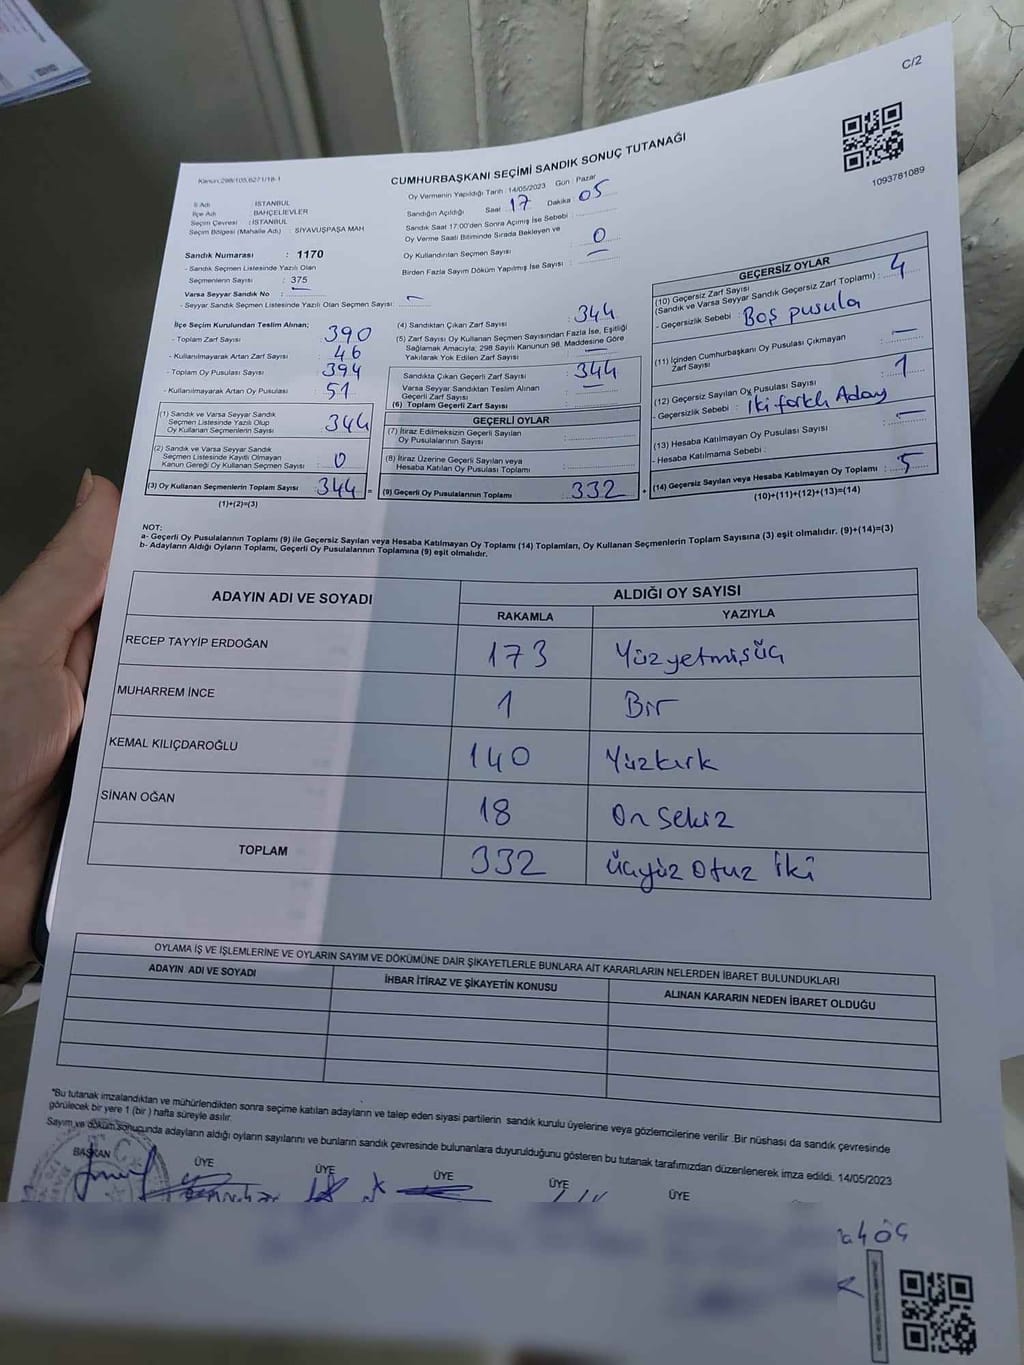 C/2
Kanun:298/105,6271/18-1
CUMHURBAŞKANI SEÇİMİ SANDIK SONUÇ TUTANAĞI
1093781089
İli Adı : İSTANBUL
İlçe Adı : BAHÇELİEVLER
Seçim Çevresi : İSTANBUL
Seçim Bölgesi (Mahalle Adı) : SİYAVUŞPAŞA MAH
Sandık Numarası : 1170
- Sandık Seçmen Listesinde Yazılı Olan
Seçmenlerin Sayısı : 375
Varsa Seyyar Sandık No :
- Seyyar Sandık Seçmen Listesinde Yazılı Olan Seçmen Sayısı:
Oy Vermenin Yapıldığı Tarih : 14/05/2023 Gün : Pazar
Sandığın Açıldığı Saat : 17 Dakika : 05
Sandık Saat 17:00'den Sonra Açılmış İse Sebebi :
Oy Verme Saati Bitiminde Sırada Bekleyen ve
Oy Kullandırılan Seçmen Sayısı : 0
Birden Fazla Sayım Döküm Yapılmış İse Sayısı :
İlçe Seçim Kurulundan Teslim Alınan;
- Toplam Zarf Sayısı : 390
- Kullanılmayarak Artan Zarf Sayısı : 46
- Toplam Oy Pusulası Sayısı : 394
- Kullanılmayarak Artan Oy Pusulası : 51
(1) Sandık ve Varsa Seyyar Sandık
Seçmen Listesinde Yazılı Olup
Oy Kullanan Seçmenlerin Sayısı : 344
(2) Sandık ve Varsa Seyyar Sandık
Seçmen Listesinde Kayıtlı Olmayan
Kanun Gereği Oy Kullanan Seçmen Sayısı : 0
(3) Oy Kullanan Seçmenlerin Toplam Sayısı : 344 =
(1)+(2)=(3)
(4) Sandıktan Çıkan Zarf Sayısı : 344
(5) Zarf Sayısı Oy Kullanan Seçmen Sayısından Fazla İse, Eşitliği
Sağlamak Amacıyla; 298 Sayılı Kanunun 98. Maddesine Göre
Yakılarak Yok Edilen Zarf Sayısı
Sandıkta Çıkan Geçerli Zarf Sayısı : 344
Varsa Seyyar Sandıktan Teslim Alınan
Geçerli Zarf Sayısı :
(6) Toplam Geçerli Zarf Sayısı :
GEÇERLİ OYLAR
(7) İtiraz Edilmeksizin Geçerli Sayılan
Oy Pusulalarının Sayısı :
(8) İtiraz Üzerine Geçerli Sayılan veya
Hesaba Katılan Oy Pusulası Toplamı :
(9) Geçerli Oy Pusulalarının Toplamı : 332 +
GEÇERSİZ OYLAR
(10) Geçersiz Zarf Sayısı
(Sandık ve Varsa Seyyar Sandık Geçersiz Zarf Toplamı) : 4
- Geçersizlik Sebebi : Boş pusula
(11) İçinden Cumhurbaşkanı Oy Pusulası Çıkmayan
Zarf Sayısı :
(12) Geçersiz Sayılan Oy Pusulası Sayısı : 1
- Geçersizlik Sebebi : İki farklı Aday
(13) Hesaba Katılmayan Oy Pusulası Sayısı :
- Hesaba Katılmama Sebebi :
(14) Geçersiz Sayılan veya Hesaba Katılmayan Oy Toplamı : 5
(10)+(11)+(12)+(13)=(14)
NOT:
a- Geçerli Oy Pusulalarının Toplamı (9) ile Geçersiz Sayılan veya Hesaba Katılmayan Oy Toplamı (14) Toplamları, Oy Kullanan Seçmenlerin Toplam Sayısına (3) eşit olmalıdır. (9)+(14)=(3)
b- Adayların Aldığı Oyların Toplamı, Geçerli Oy Pusulalarının Toplamına (9) eşit olmalıdır.
ADAYIN ADI VE SOYADI
ALDIĞI OY SAYISI
RAKAMLA YAZIYLA
RECEP TAYYİP ERDOĞAN 173 Yüzyetmişüç
MUHARREM İNCE 1 Bir
KEMAL KILIÇDAROĞLU 140 Yüzkırk
SİNAN OĞAN 18 On Sekiz
TOPLAM 332 üçyüz Otuz İki
OYLAMA İŞ VE İŞLEMLERİNE VE OYLARIN SAYIM VE DÖKÜMÜNE DAİR ŞİKAYETLERLE BUNLARA AİT KARARLARIN NELERDEN İBARET BULUNDUKLARI
ADAYIN ADI VE SOYADI İHBAR İTİRAZ VE ŞİKAYETİN KONUSU ALINAN KARARIN NEDEN İBARET OLDUĞU
*Bu tutanak imzalandıktan ve mühürlendikten sonra seçime katılan adayların ve talep eden siyasi partilerin sandık kurulu üyelerine veya gözlemcilerine verilir .Bir nüshası da sandık çevresinde
görülecek bir yere 1 (bir ) hafta süreyle asılır.
Sayım ve döküm sonucunda adayların aldığı oyların sayılarını ve bunların sandık çevresinde bulunanlara duyurulduğunu gösteren bu tutanak tarafımızdan düzenlenerek imza edildi. 14/05/2023
BAŞKAN ÜYE ÜYE ÜYE ÜYE ÜYE